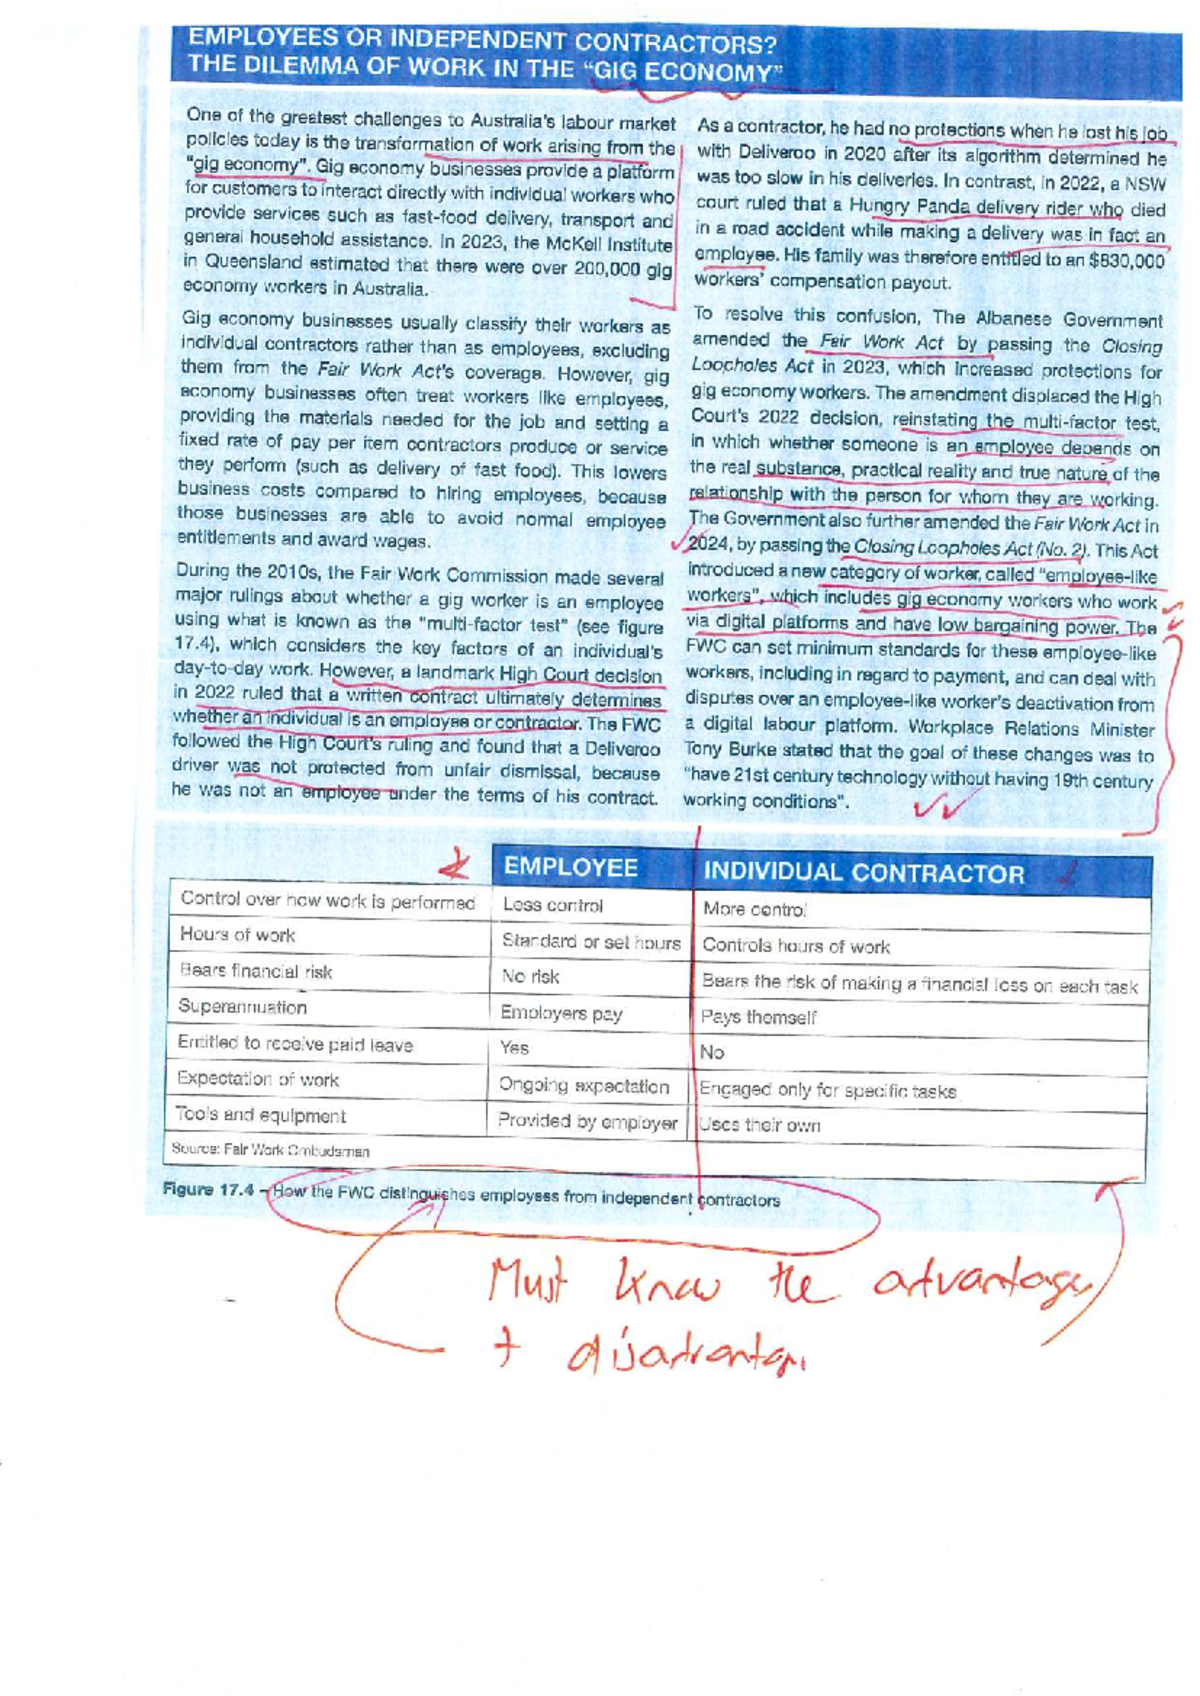 EMPLOYEES OR INDEPENDENT CONTRACTORS?
THE DILEMMA OF WORK IN THE “GIG ECONOMY”
One of the greatest challenges to Australia's labour market
policies today is the transformation of work arising from the
“gig economy”. Gig economy businesses provide a platform
for customers to interact directly with individual workers who
provide services such as fast-food delivery, transport and
general household assistance. In 2023, the McKell Institute
in Queensland estimated that there were over 200,000 gig
economy workers in Australia.
Gig economy businesses usually classify their workers as
individual contractors rather than as employees, excluding
them from the Fair Work Act's coverage. However, gig
economy businesses often treat workers like employees,
providing the materials needed for the job and setting a
fixed rate of pay per item contractors produce or service
they perform (such as delivery of fast food). This lowers
business costs compared to hiring employees, because
those businesses are able to avoid normal employee
entitlements and award wages.
During the 2010s, the Fair Work Commission made several
major rulings about whether a gig worker is an employee
using what is known as the “multi-factor test” (see figure
17.4), which considers the key factors of an individual's
day-to-day work. However, a landmark High Court decision
in 2022 ruled that a written contract ultimately determines
whether an individual is an employee or contractor. The FWC
followed the High Court's ruling and found that a Deliveroo
driver was not protected from unfair dismissal, because
he was not an employee under the terms of his contract.
As a contractor, he had no protections when he lost his job
with Deliveroo in 2020 after its algorithm determined he
was too slow in his deliveries. In contrast, in 2022, a NSW
court ruled that a Hungry Panda delivery rider who died
in a road accident while making a delivery was in fact an
employee. His family was therefore entitled to an $830,000
workers' compensation payout.
To resolve this confusion, The Albanese Government
amended the Fair Work Act by passing the Closing
Loopholes Act in 2023, which increased protections for
gig economy workers. The amendment displaced the High
Court's 2022 decision, reinstating the multi-factor test,
in which whether someone is an employee depends on
the real substance, practical reality and true nature of the
relationship with the person for whom they are working.
The Government also further amended the Fair Work Act in
2024, by passing the Closing Loopholes Act (No. 2). This Act
introduced a new category of worker, called “employee-like
workers”, which includes gig economy workers who work
via digital platforms and have low bargaining power. The
FWC can set minimum standards for these employee-like
workers, including in regard to payment, and can deal with
disputes over an employee-like worker's deactivation from
a digital labour platform. Workplace Relations Minister
Tony Burke stated that the goal of these changes was to
“have 21st century technology without having 19th century
working conditions”.
EMPLOYEE INDIVIDUAL CONTRACTOR
Control over how work is performed Less control More control
Hours of work Standard or set hours Controls hours of work
Bears financial risk No risk Bears the risk of making a financial loss on each task
Superannuation Employers pay Pays themself
Entitled to receive paid leave Yes No
Expectation of work Ongoing expectation Engaged only for specific tasks
Tools and equipment Provided by employer Uses their own
Source: Fair Work Ombudsman
Figure 17.4 – How the FWC distinguishes employees from independent contractors
Must know the advantages
+ disadvantages